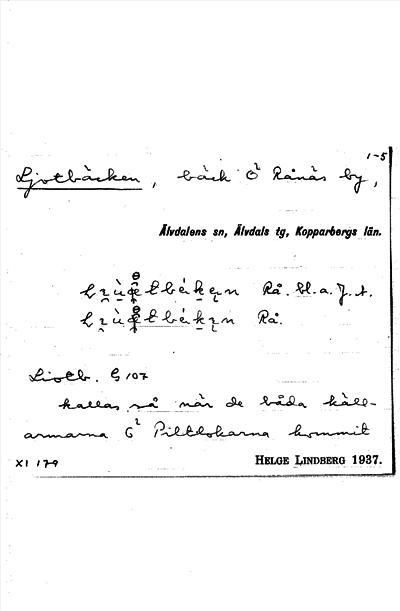 1-5
Ljotbäcken, bäck Ö² Rånäs by,
Älvdalens sn, Älvdals tg, Kopparbergs län.
Rå. bl.a. J.t.
Rå.
Liotb. G 107
kallas så när de båda käll-
armarna G² Piltlokarna kommit
XI 179
HELGE LINDBERG 1937.